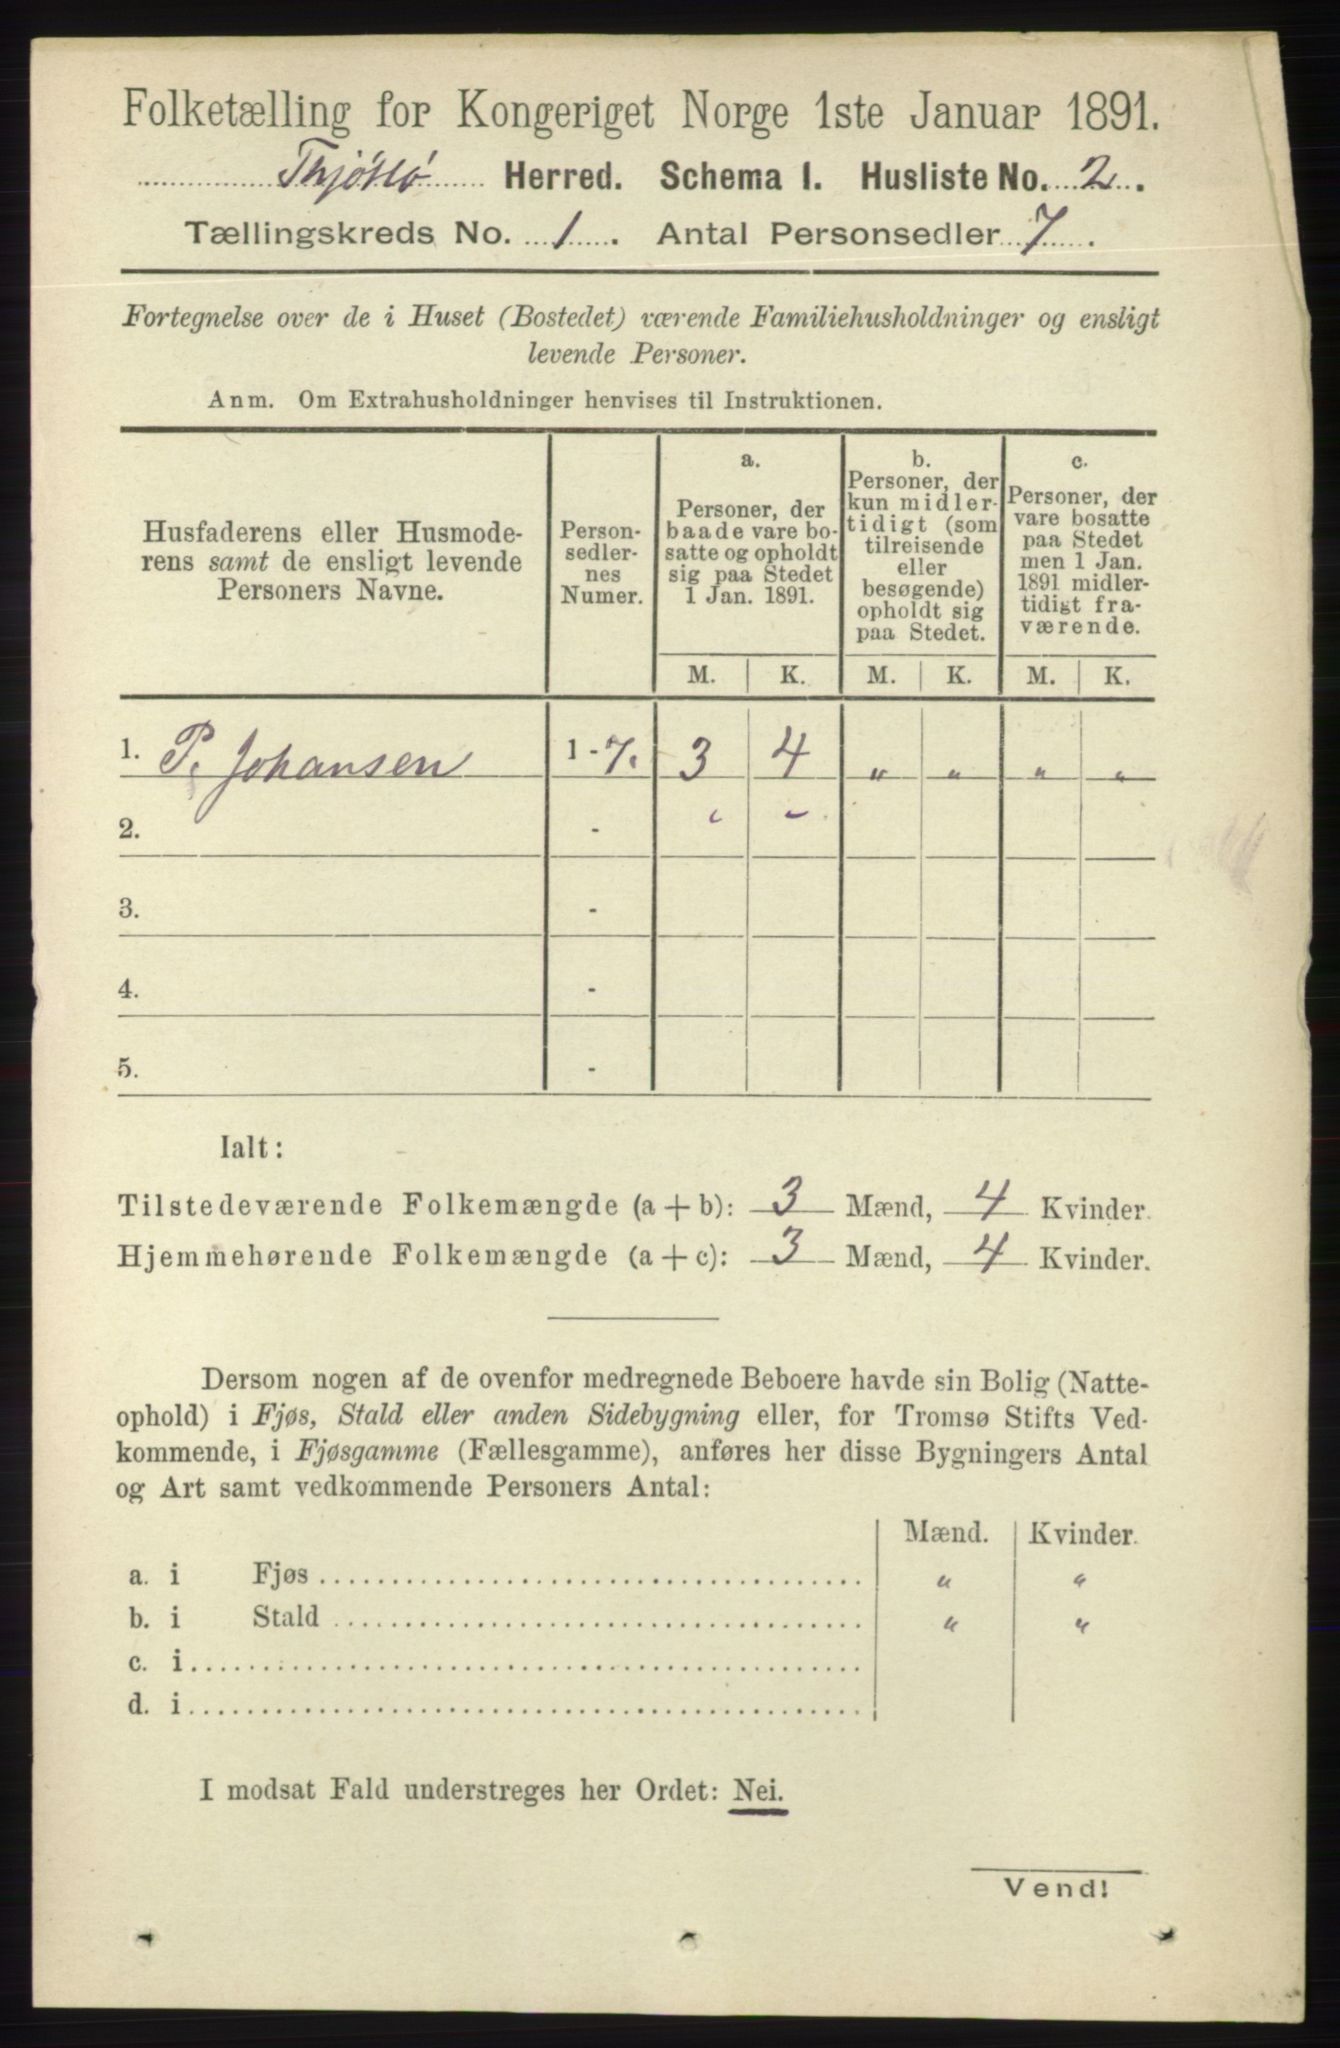 Folketælling for Kongeriget Norge 1ste Januar 1891.
Thjöttö Herred. Schema I. Husliste No. 2.
Tællingskreds No. 1. Antal Personsedler 7.
Fortegnelse over de i Huset (Bostedet) værende Familiehusholdninger og ensligt
levende Personer.
Anm. Om Extrahusholdninger henvises til Instruktionen.
Husfaderens eller Husmode-
rens samt de ensligt levende
Personers Navne.
Person-
sedler-
nes
Numer.
a.
Personer, der
baade vare bo-
satte og opholdt
sig paa Stedet
1 Jan. 1891.
b.
Personer, der
kun midler-
tidigt (som
tilreisende
eller
besøgende)
opholdt sig
paa Stedet.
c.
Personer, der
vare bosatte
paa Stedet
men 1 Jan.
1891 midler-
tidigt fra-
værende.
M. K. M. K. M. K.
1. P. Johansen 1 - 7. 3 4 „ „ „ „
2. -
3. -
4. -
5. -
Ialt:
Tilstedeværende Folkemængde (a + b): 3 Mænd, 4 Kvinder.
Hjemmehørende Folkemængde (a + c): 3 Mænd, 4 Kvinder.
Dersom nogen af de ovenfor medregnede Beboere havde sin Bolig (Natte-
ophold) i Fjøs, Stald eller anden Sidebygning eller, for Tromsø Stifts Ved-
kommende, i Fjøsgamme (Fællesgamme), anføres her disse Bygningers Antal
og Art samt vedkommende Personers Antal:
Mænd. Kvinder.
a. i Fjøs „ „
b. i Stald „ „
c. i
d. i
I modsat Fald understreges her Ordet: Nei.
Vend!